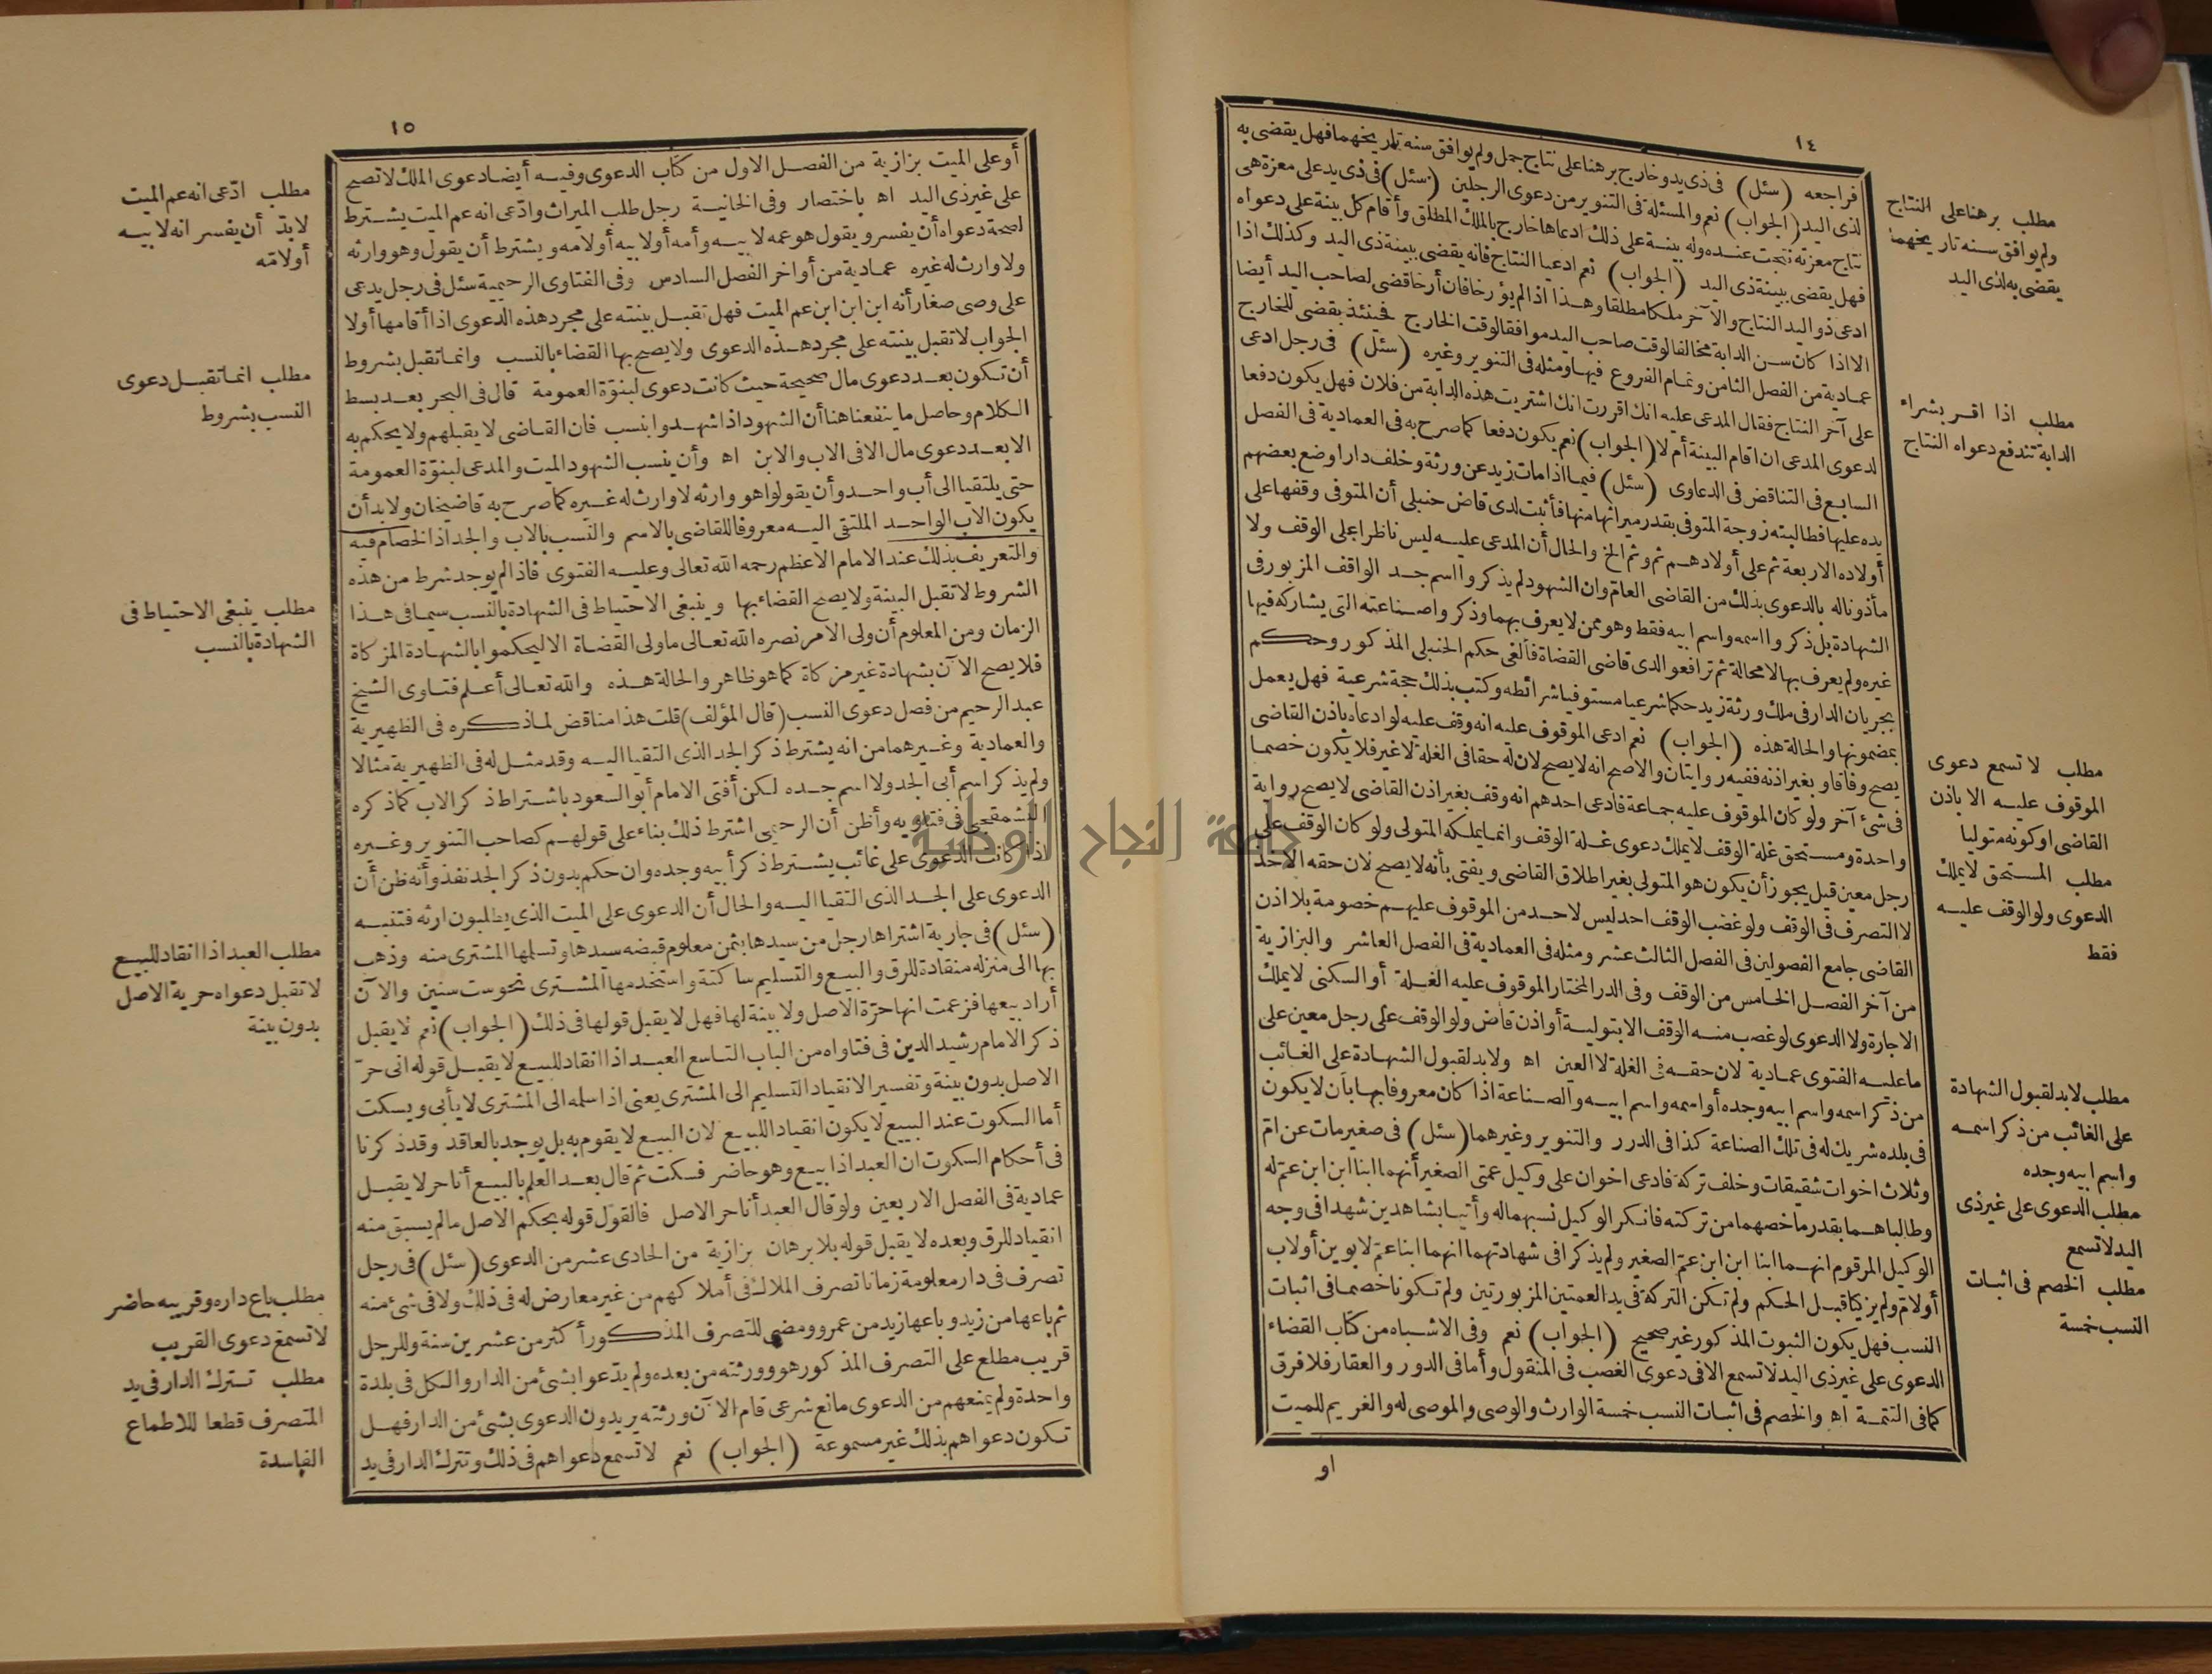 ١٤
فراجعه (سئل) فى ذى يد وخارج برهنا على نتاج جمل ولم يوافق سنه تاريخهما فهل يقضى به
لذى اليد (الجواب) نعم والمسئلة فى التنوير من دعوى الرجلين (سئل) فى ذى يد على معزة هى
نتاج معزته نتجت عنده وله بينة على ذلك ادعاها خارج بالملك المطلق وأقام كل بينة على دعواه
فهل يقضى ببينة ذى اليد (الجواب) نعم ادعيا النتاج فانه يقضى ببينة ذى اليد وكذلك اذا
ادعى ذو اليد النتاج والآخر ملكا مطلقا وهذا اذا لم يؤرخا فان أرخا قضى لصاحب اليد أيضا
الا اذا كان سن الدابة مخالفا لوقت صاحب اليد موافقا لوقت الخارج فحينئذ يقضى للخارج
عمادية من الفصل الثامن وتمام الفروع فيها ومثله فى التنوير وغيره (سئل) فى رجل ادعى
على آخر النتاج فقال المدعى عليه انك اقررت انك اشتريت هذه الدابة من فلان فهل يكون دفعا
لدعوى المدعى ان اقام البينة أم لا (الجواب) نعم يكون دفعا كما صرح به فى العمادية فى الفصل
السابع فى التناقض فى الدعاوى (سئل) فيما اذا مات زيد عن ورثة وخلف دارا وضع بعضهم
يده عليها فطالبته زوجة المتوفى بقدر ميراثها منها فأثبت لدى قاض حنبلى أن المتوفى وقفها على
أولاده الاربعة ثم على أولادهم ثم وثم الخ والحال أن المدعى عليه ليس ناظرا على الوقف ولا
مأذونا له بالدعوى بذلك من القاضى العام وان الشهود لم يذكروا اسم جد الواقف المزبور فى
الشهادة بل ذكروا اسمه واسم ابيه فقط وهو ممن لا يعرف بهما وذكروا صناعته التى يشاركه فيها
غيره ولم يعرف بها لا محالة ثم ترافعوا لدى قاضى القضاة فألغى حكم الحنبلى المذكور وحكم
بجريان الدار فى ملك ورثة زيد حكما شرعيا مستوفيا شرائطه وكتب بذلك حجة شرعية فهل يعمل
بمضمونها والحالة هذه (الجواب) نعم ادعى الموقوف عليه انه وقف عليه لو ادعاه باذن القاضى
يصح وفاقا وبغير اذنه ففيه روايتان والاصح انه لا يصح لان له حقا فى الغلة لا غير فلا يكون خصما
فى شئ آخر ولو كان الموقوف عليه جماعة فادعى احدهم انه وقف بغير اذن القاضى لا يصح رواية
واحدة ومستحق غلة الوقف لا يملك دعوى غلة الوقف وانما يملكه المتولى ولو كان الوقف على
رجل معين قيل يجوز أن يكون هو المتولى بغير اطلاق القاضى ويفتى بأنه لا يصح لان حقه الاخذ
لا التصرف فى الوقف ولو غصب الوقف احد ليس لاحد من الموقوف عليهم خصومة بلا اذن
القاضى جامع الفصولين فى الفصل الثالث عشر ومثله فى العمادية فى الفصل العاشر والبزازية
من آخر الفصل الخامس من الوقف وفى الدر المختار الموقوف عليه الغلة أو السكنى لا يملك
الاجارة ولا الدعوى لو غصب منه الوقف الا بتولية أو اذن قاض ولو الوقف على رجل معين على
ما عليه الفتوى عمادية لان حقه فى الغلة لا العين اه ولا بد لقبول الشهادة على الغائب
من ذكر اسمه واسم ابيه وجده أو اسمه واسم ابيه والصناعة اذا كان معروفا بها بأن لا يكون
فى بلده شريك له فى تلك الصناعة كذا فى الدرر والتنوير وغيرهما (سئل) فى صغير مات عن ام
وثلاث اخوات شقيقات وخلف تركة فادعى اخوان على وكيل عمتى الصغير أنهما ابنا ابن ابن عم له
وطالباهما بقدر ما خصهما من تركته فانكر الوكيل نسبهما له وأتيا بشاهدين شهدا فى وجه
الوكيل المرقوم انهما ابنا ابن ابن عم الصغير ولم يذكرا فى شهادتهما انهما ابنا عم لابوين أو لاب
أو لام ولم يزكيا قبل الحكم ولم تكن التركة فى يد العمتين المزبورتين ولم تكونا خصما فى اثبات
النسب فهل يكون الثبوت المذكور غير صحيح (الجواب) نعم وفى الاشباه من كتاب القضاء
الدعوى على غير ذى اليد لا تسمع الا فى دعوى الغصب فى المنقول وأما فى الدور والعقار فلا فرق
كما فى التتمة اه والخصم فى اثبات النسب خمسة الوارث والوصى والموصى له والغريم للميت
او
مطلب برهنا على النتاج
ولم يوافق سنه تاريخهما
يقضى به لذى اليد
مطلب اذا اقر بشراء
الدابة تندفع دعواه النتاج
مطلب لا تسمع دعوى
الموقوف عليه الا باذن
القاضى او كونه متوليا
مطلب المستحق لا يملك
الدعوى ولو الوقف عليه
فقط
مطلب لا بد لقبول الشهادة
على الغائب من ذكر اسمه
واسم ابيه وجده
مطلب الدعوى على غير ذى
اليد لا تسمع
مطلب الخصم فى اثبات
النسب خمسة
١٥
أو على الميت بزازية من الفصل الاول من كتاب الدعوى وفيه أيضا دعوى الملك لا تصح
على غير ذى اليد اه باختصار وفى الخانية رجل طلب الميراث وادعى انه عم الميت يشترط
لصحة دعواه أن يفسر ويقول هو عمه لابيه وأمه أو لابيه أو لامه ويشترط أن يقول وهو وارثه
ولا وارث له غيره عمادية من أواخر الفصل السادس وفى الفتاوى الرحيمية سئل فى رجل يدعى
على وصى صغار أنه ابن ابن ابن عم الميت فهل تقبل بينته على مجرد هذه الدعوى اذا أقامها أولا
الجواب لا تقبل بينته على مجرد هذه الدعوى ولا يصح بها القضاء بالنسب وانما تقبل بشروط
أن تكون بعد دعوى مال صحيحة حيث كانت دعوى لبنوة العمومة قال فى البحر بعد بسط
الكلام وحاصل ما ينفعنا هنا أن الشهود اذا شهدوا بنسب فان القاضى لا يقبلهم ولا يحكم به
الا بعد دعوى مال الا فى الاب والابن اه وأن ينسب الشهود الميت والمدعى لبنوة العمومة
حتى يلتقيا الى أب واحد وأن يقولوا هو وارثه لا وارث له غيره كما صرح به قاضيخان ولا بد أن
يكون الاب الواحد الملتقى اليه معروفا للقاضى بالاسم والنسب بالاب والجد اذ الخصام فيه
والتعريف بذلك عند الامام الاعظم رحمه الله تعالى وعليه الفتوى فاذا لم يوجد شرط من هذه
الشروط لا تقبل البينة ولا يصح القضاء بها وينبغى الاحتياط فى الشهادة بالنسب سيما فى هذا
الزمان ومن المعلوم أن ولى الامر نصره الله تعالى ما ولى القضاة الا ليحكموا بالشهادة المزكاة
فلا يصح الآن بشهادة غير مزكاة كما هو ظاهر والحالة هذه والله تعالى أعلم فتاوى الشيخ
عبد الرحيم من فصل دعوى النسب (قال المؤلف) قلت هذا مناقض لما ذكره فى الظهيرية
والعمادية وغيرهما من انه يشترط ذكر الجد الذى التقيا اليه وقد مثل له فى الظهيرية مثالا
ولم يذكر اسم أبى الجد ولا اسم جده لكن أفتى الامام أبو السعود باشتراط ذكر الاب كما ذكره
الشمقجى فى فتاويه وأظن أن الرحيمى اشترط ذلك بناء على قولهم كصاحب التنوير وغيره
اذا كانت الدعوى على غائب يشترط ذكر أبيه وجده وان حكم بدون ذكر الجد نفذ وأنه ظن أن
الدعوى على الجد الذى التقيا اليه والحال أن الدعوى على الميت الذى يطلبون ارثه فتنبه
(سئل) فى جارية اشتراها رجل من سيدها بثمن معلوم قبضه سيدها وتسلمها المشترى منه وذهب
بها الى منزله منقادة للرق والبيع والتسليم ساكتة واستخدمها المشترى نحو ست سنين والآن
أراد بيعها فزعمت انها حرة الاصل ولا بينة لها فهل لا يقبل قولها فى ذلك (الجواب) نعم لا يقبل
ذكر الامام رشيد الدين فى فتاواه من الباب التاسع العبد اذا انقاد للبيع لا يقبل قوله انى حر
الاصل بدون بينة وتفسير الانقياد التسليم الى المشترى يعنى اذا سلمه الى المشترى لا يأبى ويسكت
أما السكوت عند البيع لا يكون انقيادا للبيع لان البيع لا يقوم به بل يوجد بالعاقد وقد ذكرنا
فى أحكام السكوت ان العبد اذا بيع وهو حاضر فسكت ثم قال بعد العلم بالبيع أنا حر لا يقبل
عمادية فى الفصل الاربعين ولو قال العبد أنا حر الاصل فالقول قوله بحكم الاصل ما لم يسبق منه
انقياد للرق وبعده لا يقبل قوله بلا برهان بزازية من الحادى عشر من الدعوى (سئل) فى رجل
تصرف فى دار معلومة زمانا تصرف الملاك فى أملاكهم من غير معارض له فى ذلك ولا فى شئ منه
ثم باعها من زيد وباعها زيد من عمرو ومضى للتصرف المذكور أكثر من عشرين سنة وللرجل
قريب مطلع على التصرف المذكور هو وورثته من بعده ولم يدعوا بشئ من الدار والكل فى بلدة
واحدة ولم يمنعهم من الدعوى مانع شرعى قام الآن ورثته يريدون الدعوى بشئ من الدار فهل
تكون دعواهم بذلك غير مسموعة (الجواب) نعم لا تسمع دعواهم فى ذلك وتترك الدار فى يد
مطلب ادعى انه عم الميت
لا بد أن يفسر انه لابيه
أو لامه
مطلب انما تقبل دعوى
النسب بشروط
مطلب ينبغى الاحتياط فى
الشهادة بالنسب
مطلب العبد اذا انقاد للبيع
لا تقبل دعواه حرية الاصل
بدون بينة
مطلب باع داره وقريبه حاضر
لا تسمع دعوى القريب
مطلب تترك الدار فى يد
المتصرف قطعا للاطماع
الفاسدة
جامعة النجاح الوطنية